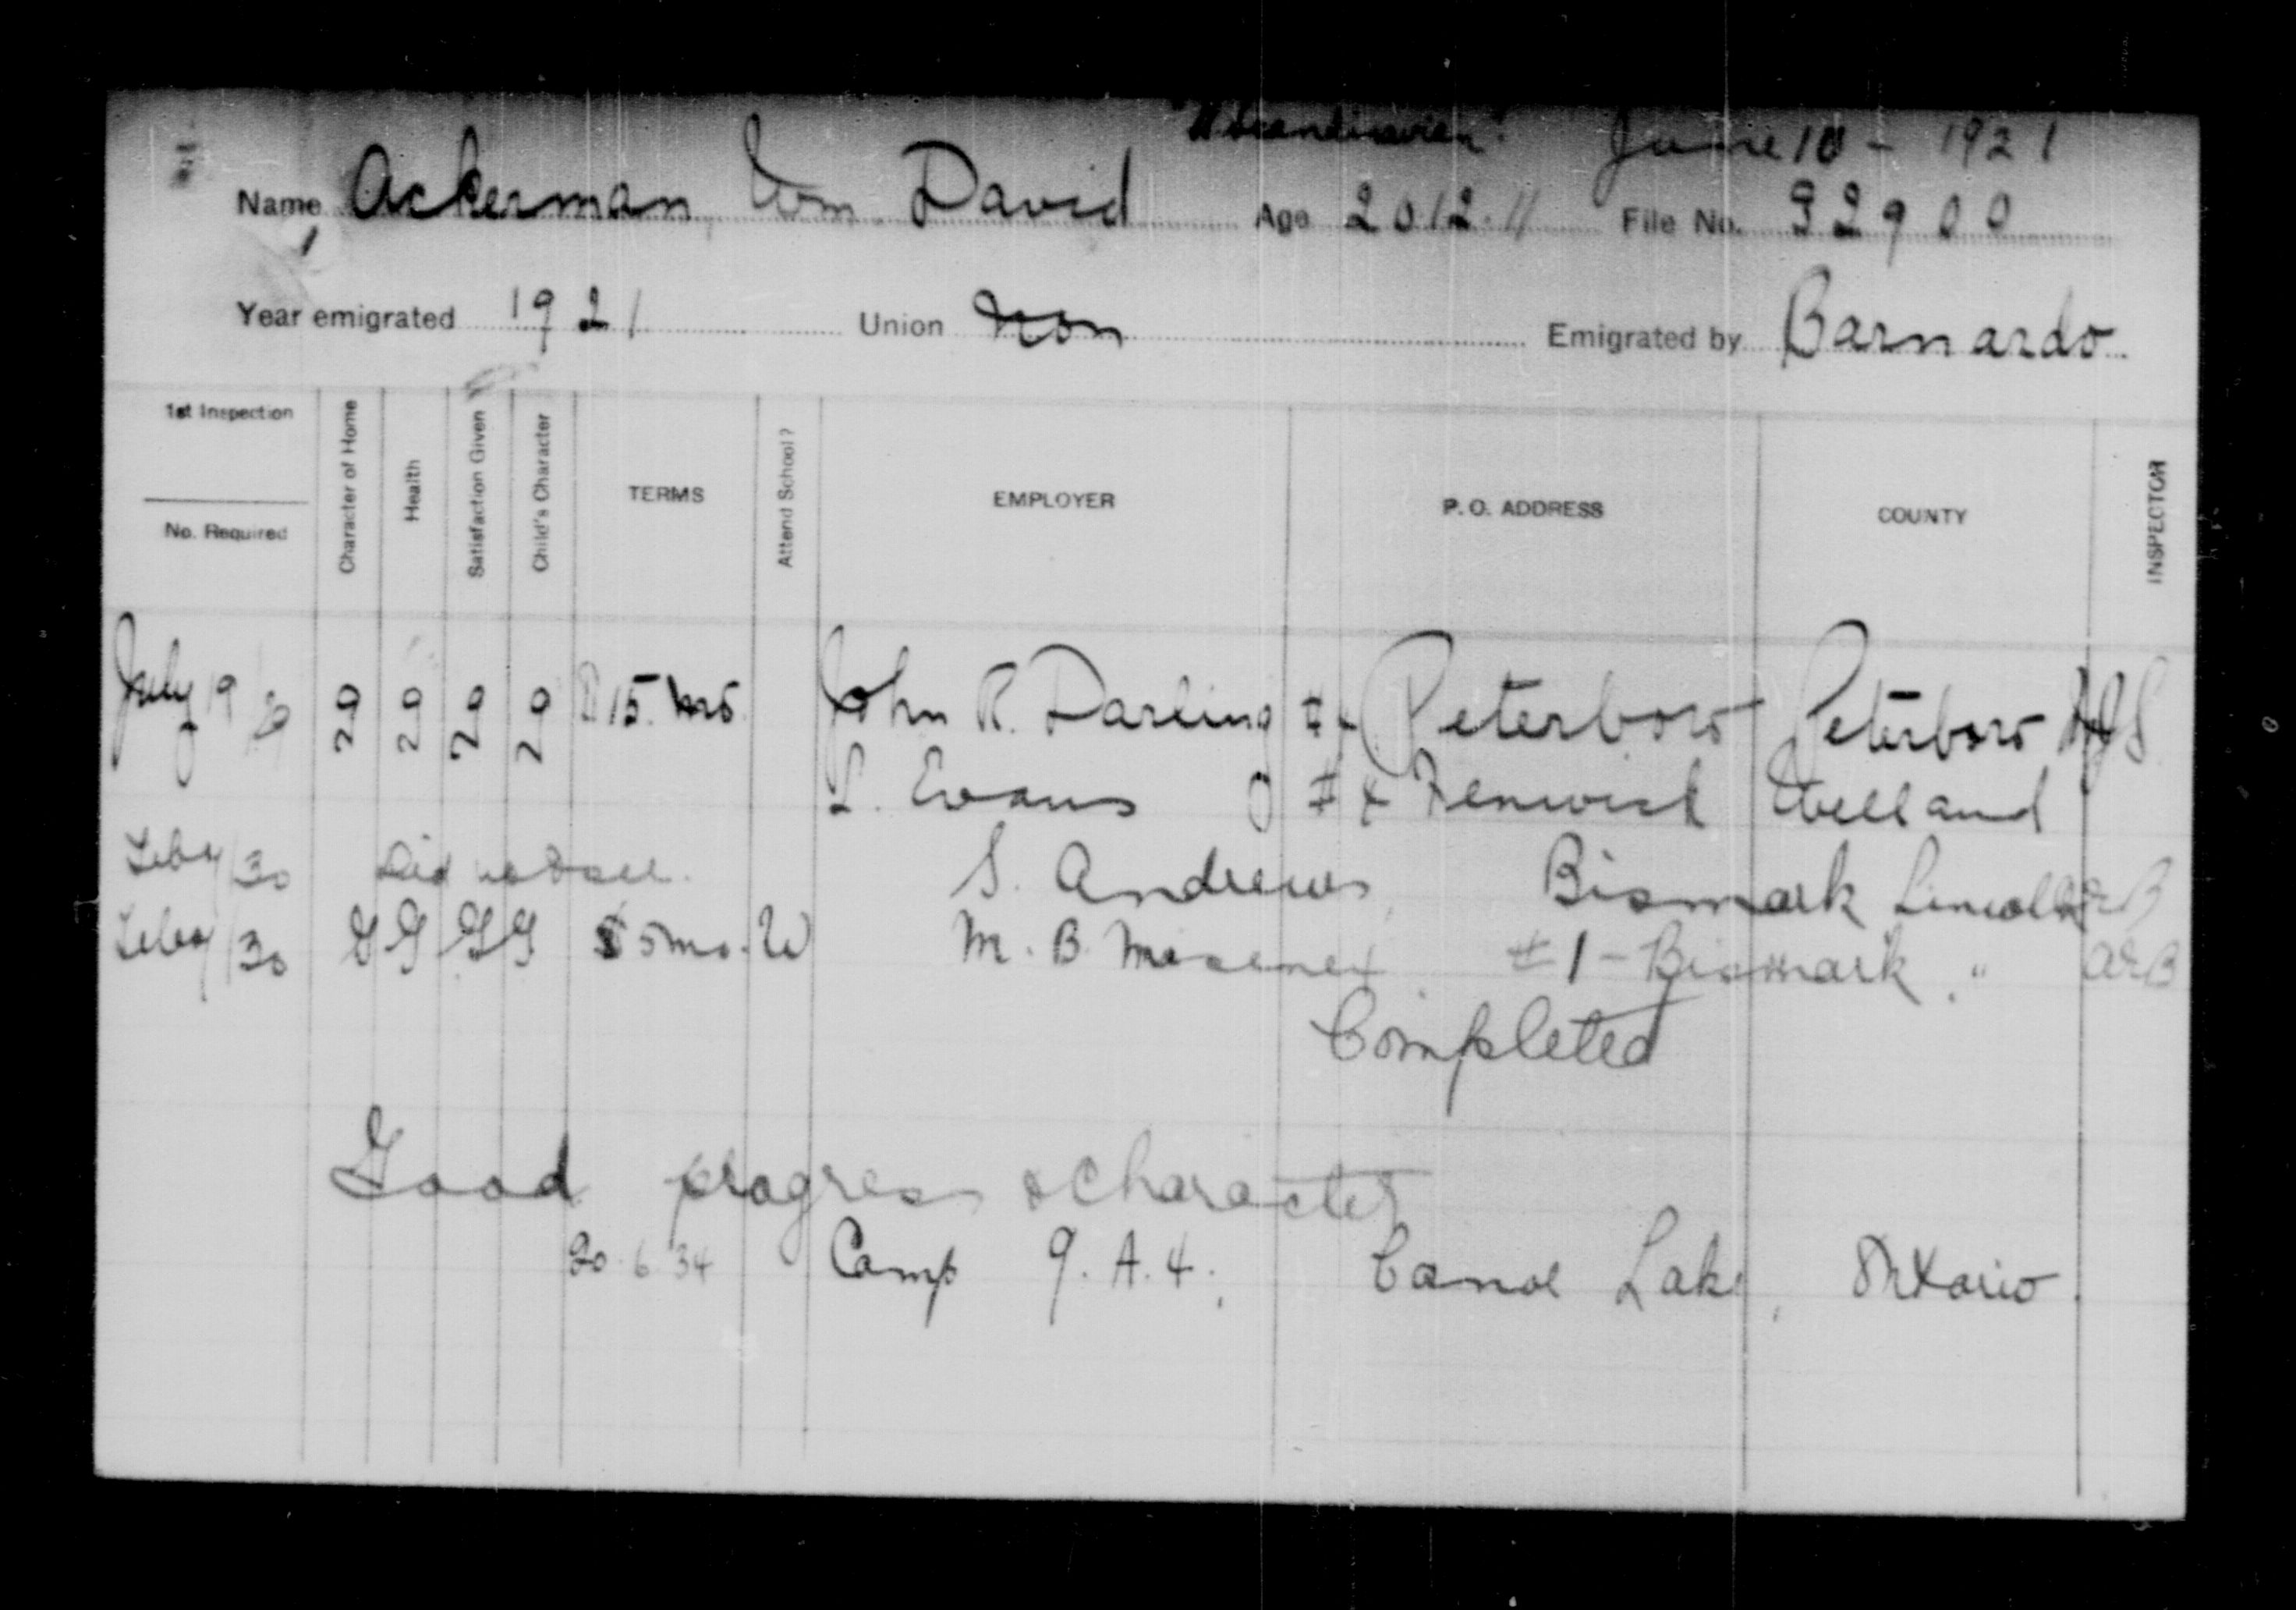 "Scandinavian" June 10 - 1921
Name Ackerman, Wm David Age 2012.11 File No. 32900
Year emigrated 1921 Union Non Emigrated by Barnardo
1st Inspection
No. Required
Character of Home
Health
Satisfaction Given
Child's Character
TERMS
Attend School?
EMPLOYER
P. O. ADDRESS
COUNTY
INSPECTOR
July 19 15. mo John R. Darling # Peterboro Peterboro
L. Evans #4 Fenwick Welland
Feby/30 Did not see. S. Andrews, Bismark Lincoln
Feby/30 G G G G $5 mo. W M. B. #1 - Bismark, " ArB
Completed
Good progress & character
20.6.34 Camp 9. A. 4, Canoe Lake, Ontario.